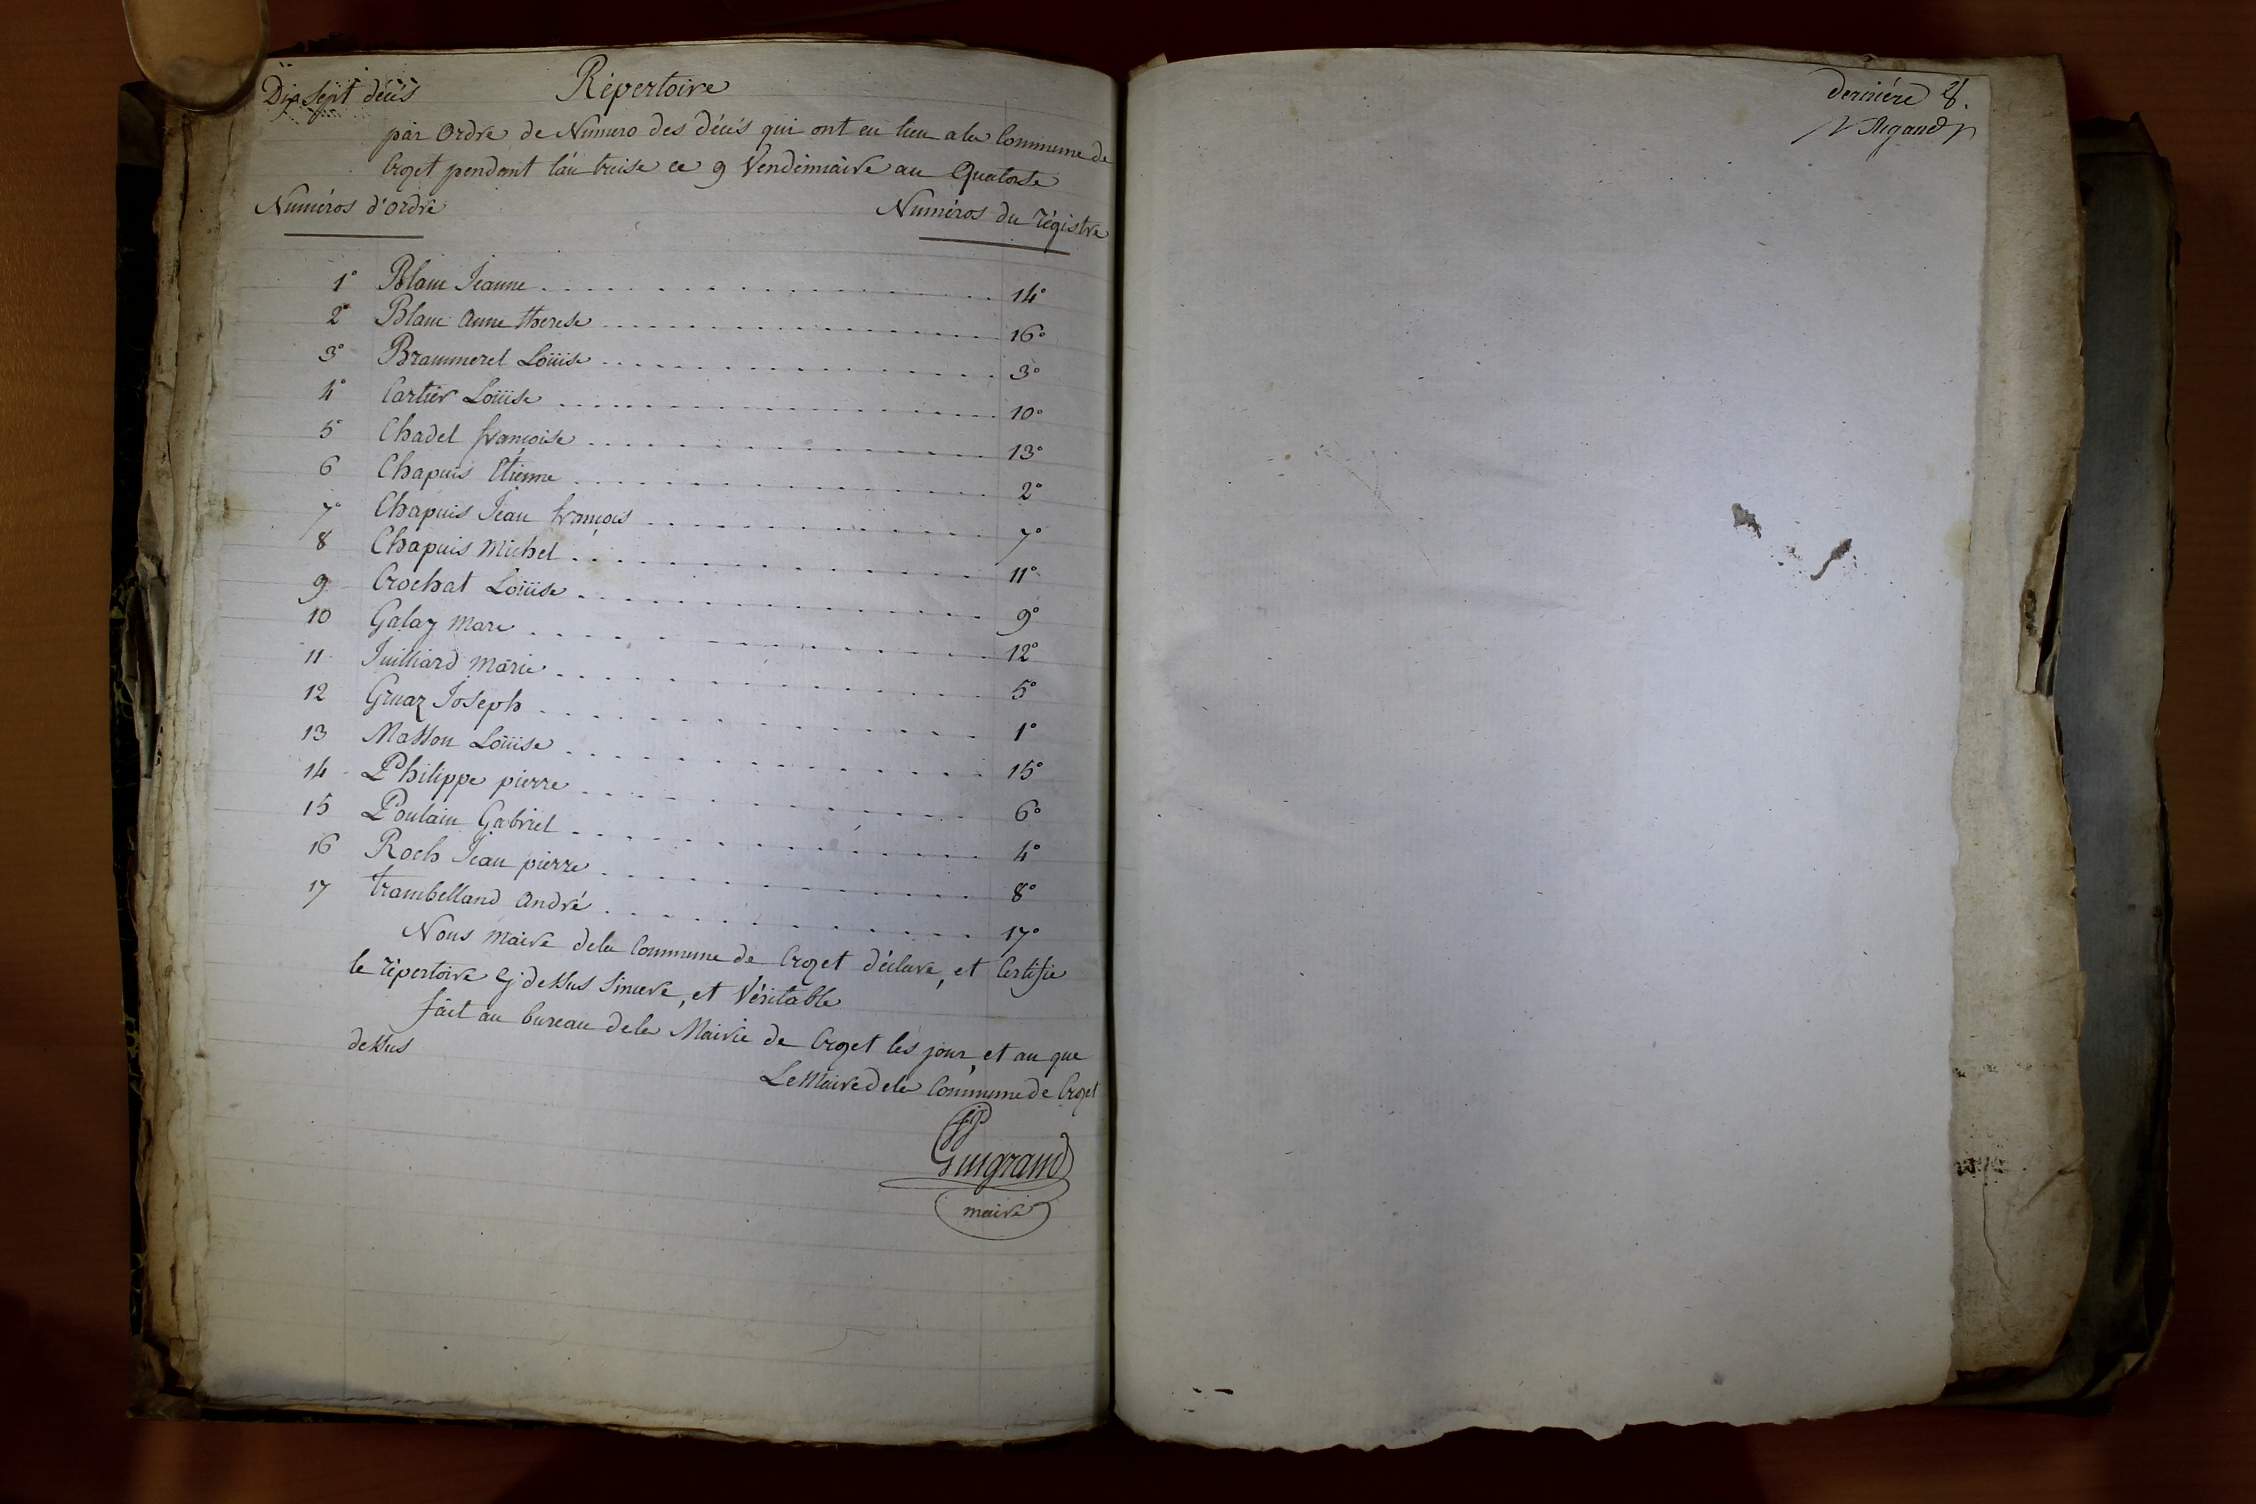 Dix sept décès
Répertoire
par Ordre de Numero des décés qui ont eu lieu a la Commune de
Crozet pendant l'an treise ce 9 Vendémiaire an Quatorse
Numéros d'ordre
Numéros du régistre
1° Blanc Jeanne 14°
2° Blanc Anne therese 16°
3° Brammerel Loüise 3°
4° Cartier Loüise 10°
5° Chadel françoise 13°
6 Chapuis Etienne 2°
7° Chapuis Jean françois 7°
8 Chapuis Michel 11°
9 Crochat Loüise 9°
10 Galay Marc 12°
11 Juilliard Marie 5°
12 Gruaz Joseph 1°
13 Masson Loüise 15°
14 Philippe pierre 6°
15 Poulain Gabriel 4°
16 Roch Jean pierre 8°
17 trambelland André 17°
Nous Maire dela Commune de Crozet déclare, et Certifie
le répertoire Cy dessus Sincere, et Véritable
fait au bureau dela Mairie de Crozet les jour, et an que
dessus
Le Maire dela Commune de Crozet
Guigrand
maire
derniére
Rigaud